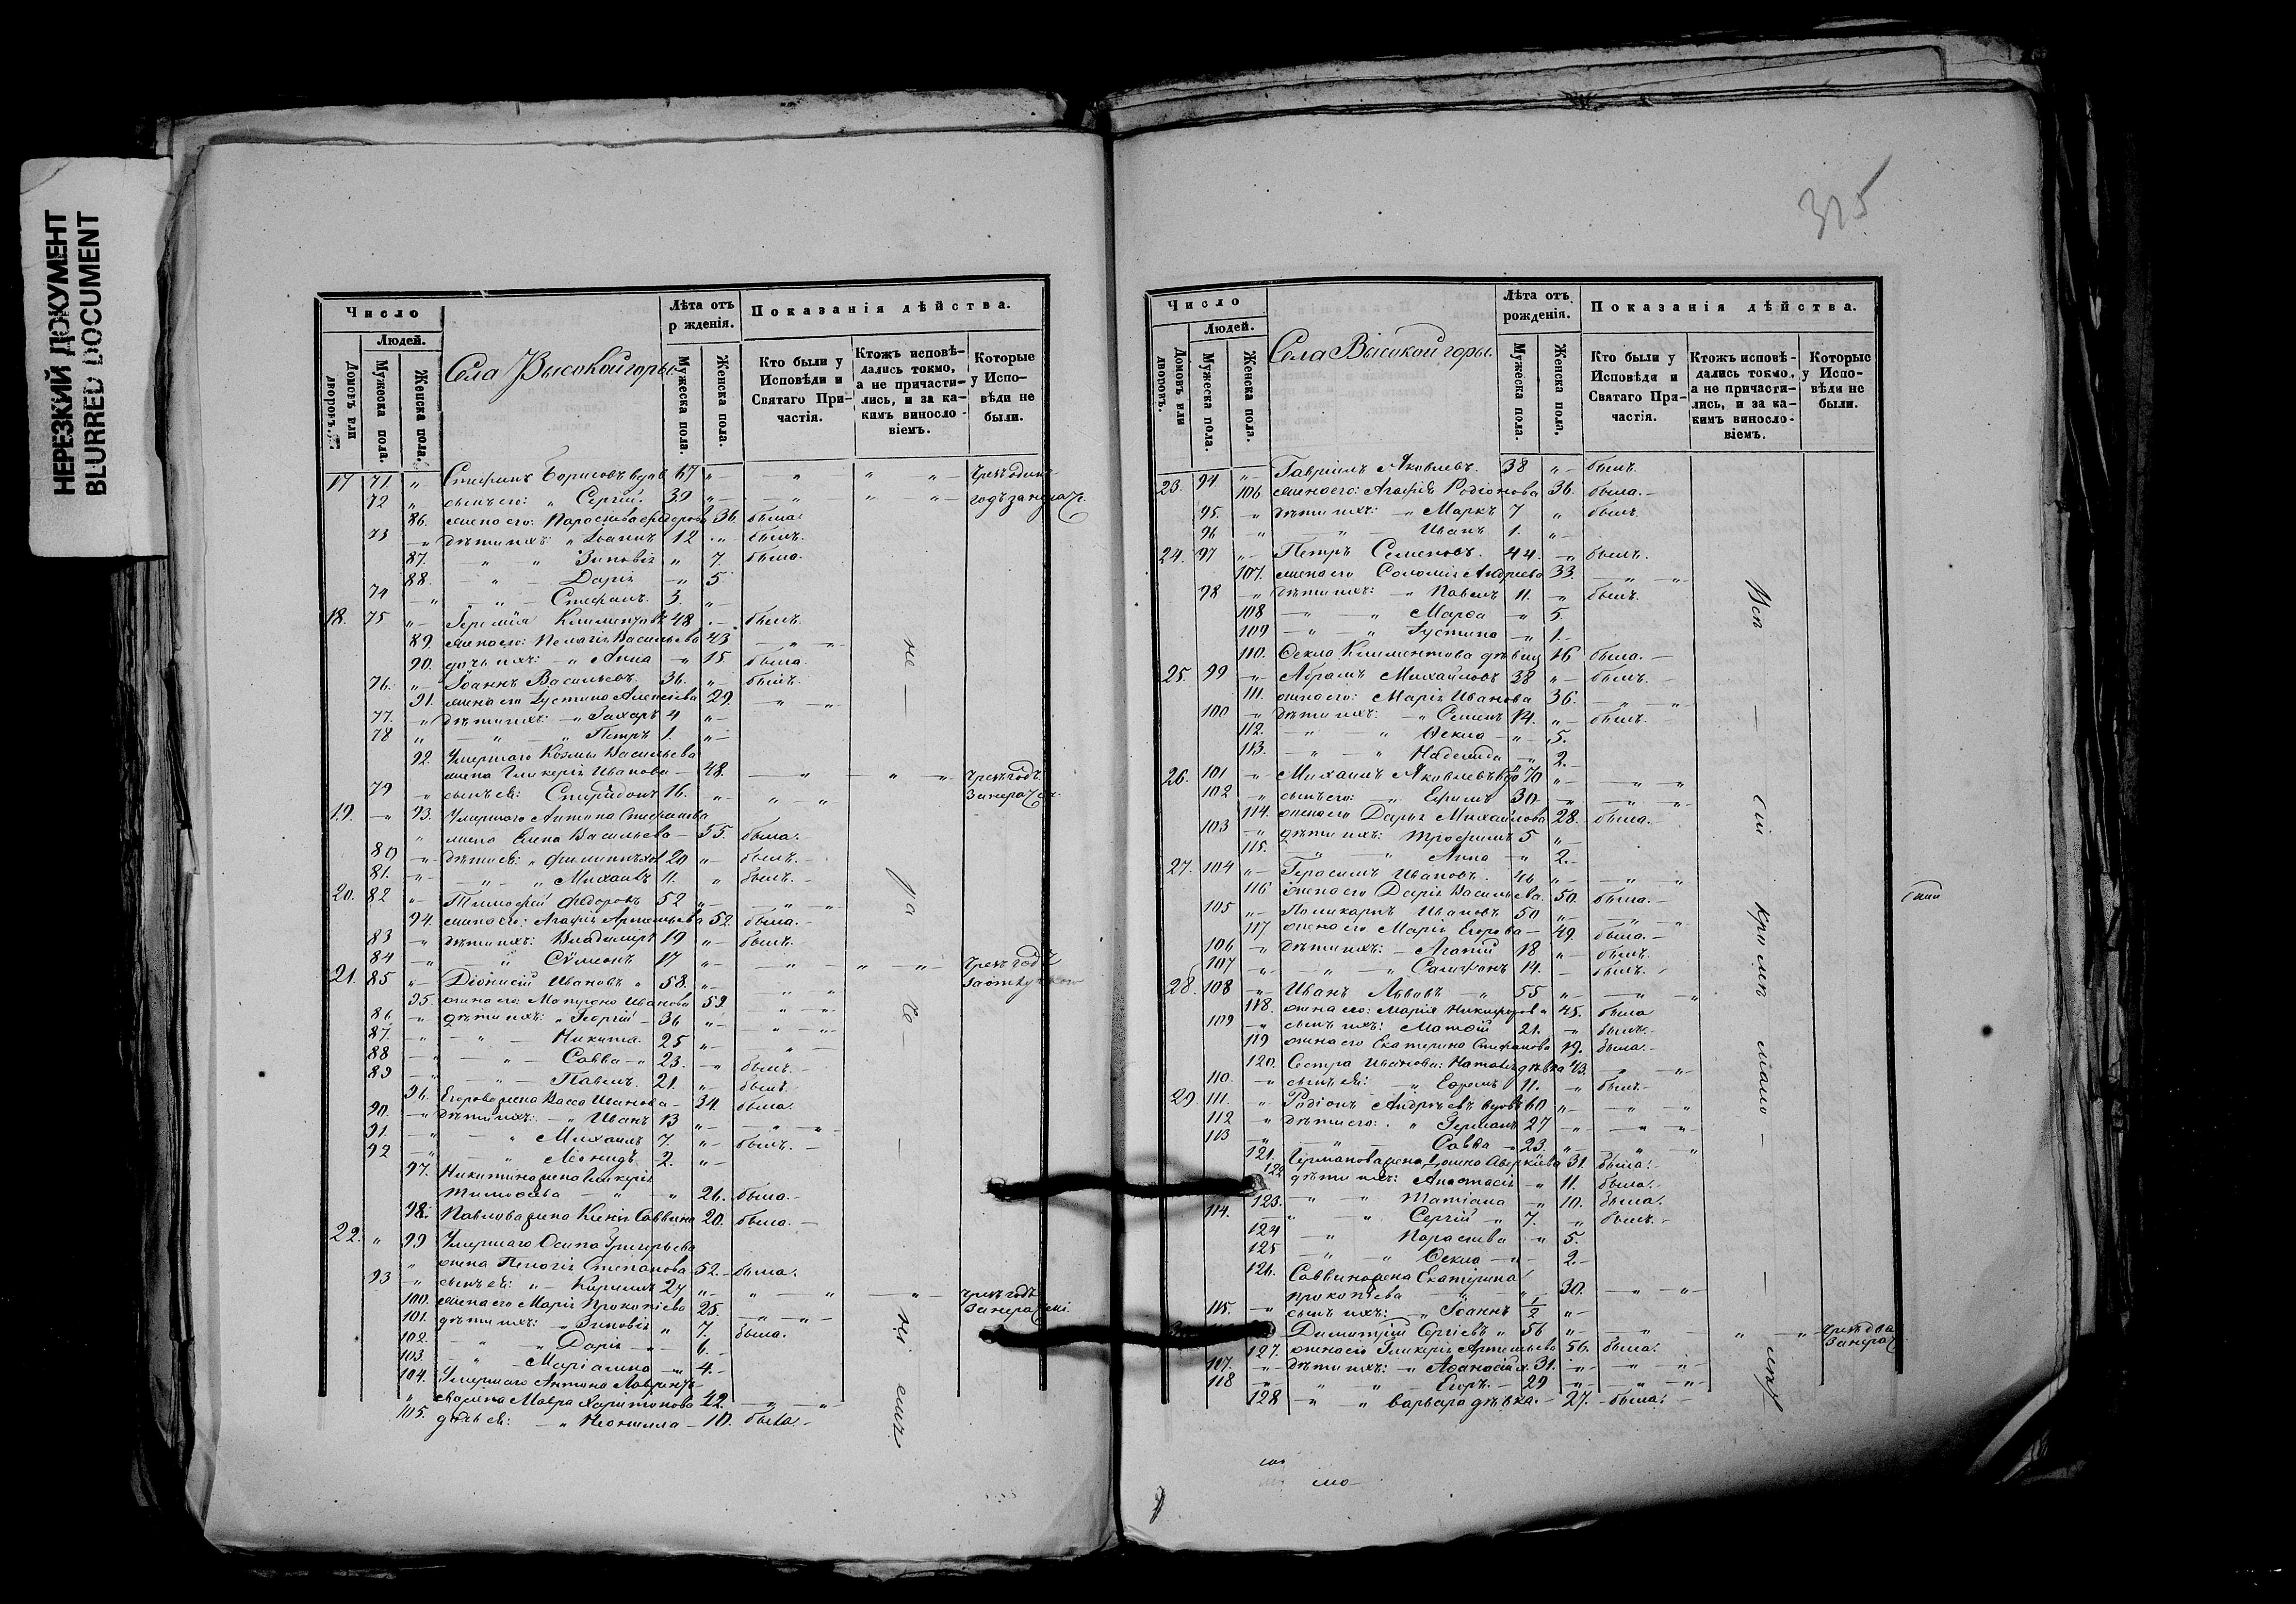 НЕРЕЗКИЙ ДОКУМЕНТ
BLURRED DOCUMENT
Число
Людей.
Домовъ или дворовъ.
Мужеска пола.
Женска пола.
Села Высокой горы
Лѣта отъ р жденія.
Мужеска пола.
Женска пола.
Показанія дѣйства.
Кто были у Исповѣди и Святаго Причастія.
Ктожъ исповѣдались токмо, а не причастились, и за какимъ винословіемъ.
Которые у Исповѣди не были.
17 71. " Стефанъ Борисовъ вдов 67 " Чрезъ одинъ
72 " сынъ его: " Сергій. 39 " годъ за нерач.
86. жена его: Параскева Федорова 36. была.
73 " дѣти ихъ: " Іоаннъ 12 " былъ.
87. " " Зиновія " 7. была.
88. " Дарія " 5
74 " " Стефанъ. 3. "
18. 75 " Іеремія Климентовъ 48 былъ.
89. жена его: Пелагія Васильева 43 " "
90. дочь ихъ: " Анна " 15. была.
76. " Іоаннъ Васильевъ. 36. " былъ.
91. жена его Іустина Алексіева 29. " "
77. " дѣти ихъ: " Захаръ 4 "
78 " " " Петръ 1. "
92. Умершаго Козмы Васильева
жена Гликерія Иванова 48. " " " Чрезъ годъ
79 " сынъ ея: Спиридонъ 16. " " " За нерач.
19. " 93. Умершаго Антона Стефанова
" жена Елена Васильева 55. была.
80 " дѣти ея: " Филиппъ хол 20 " былъ.
81. " " " Михаилъ 11. " былъ.
20. 82 " Тимофей Федоровъ 52 " " "
94. жена его: Агафія Артемьева 52. была.
83 " дѣти ихъ: Владиміръ 19 " былъ.
84 " " Сѵмеонъ 17 " " " " Чрезъ годъ
21. 85 " Діонисій Ивановъ " 58. " " " За отлучкою
95. жена его: Матрона Иванова 59. " "
86. " дѣти ихъ: " Георгій 36 " " "
87. " " Никита. 25 " "
88 " " Савва " 23. " былъ.
89 " " Павелъ. 21. " былъ.
96. Егорова жена Васса Иванова 34. была.
90. " дѣти ихъ: " Иванъ 13 " " "
91. " " Михаилъ 7. " былъ.
92 " " Леонидъ. 2. "
97. Никитина жена Гликерія
Тимофеева " " 26. была.
98. Павлова жена Ксенія Саввина 20. была.
22. " 99 Умершаго Осипа Григорьева
" жена Пелагія Степанова 52. была.
93 " сынъ ея: " Кириллъ 24 " " " " Чрезъ годъ
100. жена его Марія Прокопіева 25. " " За нерач.
101. дѣти ихъ: " Зиновія " 7. была.
102. " Дарія " 6.
103. " Маріамна " 4.
104. Умершаго Антона Лаврентьева
" жена Мавра Харитонова 42. " "
105. дочь ея: " Неонилла 10. была.
не
ра
ея
315
Число
Людей.
Домовъ или дворовъ.
Мужеска пола.
Женска пола.
Села Высокой горы.
Лѣта отъ рожденія.
Мужеска пола.
Женска пола.
Показанія дѣйства.
Кто были у Исповѣди и Святаго Причастія.
Ктожъ исповѣдались токмо, а не причастились, и за какимъ винословіемъ.
Которые у Исповѣди не были.
23. 94. " Гавріилъ Яковлевъ. 38 " былъ.
106 жена его: Агафія Родіонова 36. была.
95. " дѣти ихъ: " Маркъ 7 " былъ.
96 " " Иванъ 1. "
24. 97 " Петръ Семеновъ. 44. " былъ.
107. жена его Соломія Андреева 33. " "
98 " дѣти ихъ: " Павелъ 11. " былъ.
108 " " Марѳа " 5.
109 " " Іустина " 1.
110. Ѳекла Климентова дѣвица 16 была.
25. 99 " Абрамъ Михайловъ 38 " былъ.
111. жена его: Марія Иванова 36. " "
100 " дѣти ихъ: " Семенъ 14. " былъ.
112. " " Ѳекла " 5.
113. " " Надежда " 2.
26. 101 " Михаилъ Яковлевъ вдо 70 " " "
102 " сынъ его: " Ефимъ 30 " " "
114. жена его Дарья Михайлова 28. была.
103 " дѣти ихъ: Трофимъ 5 "
115. " " Анна " 2.
27. 104 " Герасимъ Ивановъ. 46 " " "
116 жена его Дарія Васильева. 50. была.
105 " Поликарпъ Ивановъ 50 " " "
117 жена его Марія Егорова 49. была.
106 " дѣти ихъ: Агапій 18 " былъ.
107 " " " Самфонъ 14. былъ.
28. 108 " Иванъ Львовъ " 55 " " "
118. жена его: Марія Никифорова 45. была
109 " сынъ ихъ: Матѳій 21. " былъ.
119 жена его Екатерина Стефанова 19. была.
120. Сестра Иванова: Наталія дѣвка 43. " "
110. " сынъ ея: " Ефремъ 11. " былъ.
29 111. " Родіонъ Андреевъ вдовъ 60 " " "
112 " дѣти его: " Германъ 27 " " "
113 " " Савва 23. " " "
121. Германова жена Аверкіева 31. была.
122 дѣти ихъ: Анастасія " 11. была.
123. " " Татіана " 10. была.
114. " " Сергій " 7. " былъ.
124 " Параскева " 5.
125 " " Ѳекла " 2.
126. Саввина жена Екатерина
Прокопіева " " 30. " "
115. " сынъ ихъ: " Іоаннъ 1/2 "
Димитрій Сергіевъ " 56 " " " " Чрезъ два
127. жена его Гликерія Артемьева 56. была. За нерач.
117. " дѣти ихъ: " Аѳанасій 31. " " "
118 " " " Егоръ. 29 " " "
128 " " Варвара дѣвка. 27. была.
Всѣ
сіи
кромѣ
мало
лѣт